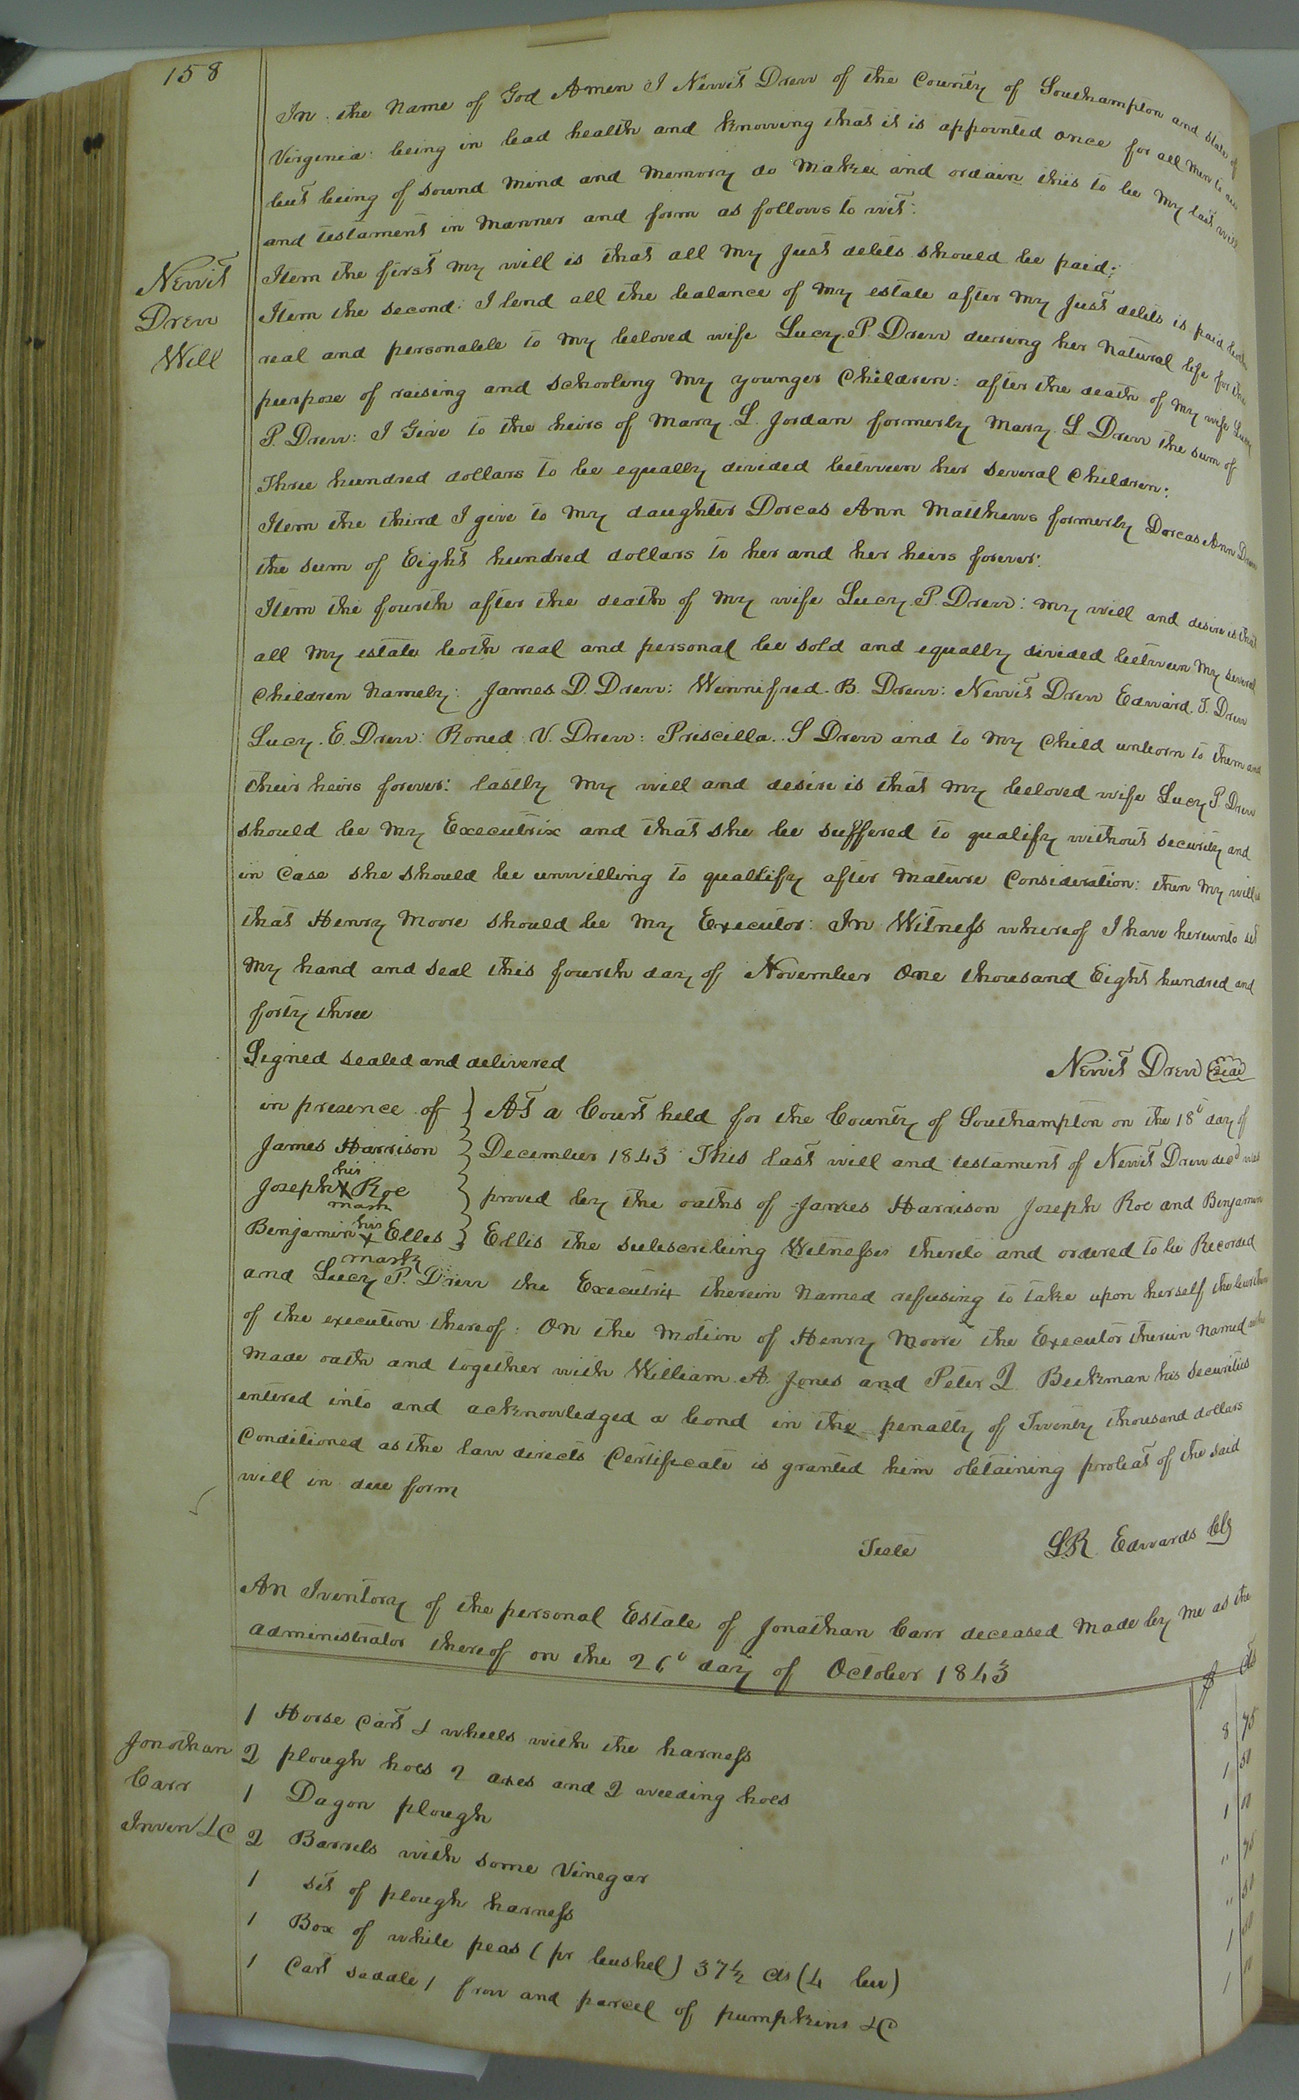 158
In the Name of God Amen I Newit Drew of the County of Southampton and state of
Virginia: being in bad health and knowing that it is appointed once for all men to
but being of sound Mind and Memory do Make and ordain this to be My last will
and testament in Manner and form as follows to wit:
Newit
Drew
Will
Item the first My will is that all My Just debts should be paid:
Item the second: I lend all the balance of My estate after My Just debts is paid both
real and personable to My beloved wife Lucy. P. Drew during her natural life for the
purpose of raising and schooling My younger Children: after the death of My wife Lucy
P. Drew: I Give to the heirs of Mary. L. Jordan formerly Mary. L Drew the sum of
Three hundred dollars to be equally divided between her several Children:
Item the third I give to My daughter Dorcas Ann Matthews formerly Dorcas Ann Drew
the sum of Eight hundred dollars to her and her heirs forever:
Item the fourth after the death of My wife Lucy. P. Drew: My will and desire is that
all My estate both real and personal be sold and equally divided between My several
Children Namely: James D. Drew: Winnifred. B. Drew: Newit Drew Edward. T. Drew
Lucy. E. Drew: Roned V. Drew: Priscilla. S Drew and to My Child unborn to them and
their heirs forever: lastly My will and desire is that My beloved wife Lucy P. Drew
should be My Executrix and that she be suffered to qualify without security and
in Case she should be unwilling to qualify after Mature Consideration: then My will is
that Henry Moore should be My Executor: In Witness whereof I have hereunto set
My hand and seal this fourth day of November One thousand Eight hundred and
forty three
Signed sealed and delivered Newit Drew seal
in presence of } At a Court held for the County of Southampton on the 18th day of
James Harrison } December 1843 This last will and testament of Newit Drew decd was
Joseph his X mark Roe } proved by the oaths of James Harrison Joseph Roe and Benjamin
Benjamin his X mark Elles } Ellis the subscribing Witnesses thereto and ordered to be Recorded
and Lucy P. Drew the Executrix therein Named refusing to take upon herself the burthen
of the execution thereof: On the Motion of Henry Moore the Executor therein Named who
Made oath and together with William. A. Jones and Peter J. Beekman his Securities
entered into and acknowledged a bond in the penalty of Twenty thousand dollars
Conditioned as the law directs Certificate is granted him obtaining probat of the said
will in due form
Teste L.R. Edwards Clk
An Inventory of the personal Estate of Jonathan Carr deceased Made by Me as the
administrator thereof on the 26th day of October 1843
$ cts
Jonathan
Carr
Inven &C
1 Horse Cart & wheels with the harness 8 75
2 plough hoes 2 axes and 2 weeding hoes 1 50
1 Dagon plough 1 00
2 Barrels with some Vinegar " 75
1 set of plough harness " 50
1 Box of white peas (pr bushel) 37½ cts (4 bu) 1 50
1 Cart saddle 1 frow and parcel of pumpkins &C 1 00